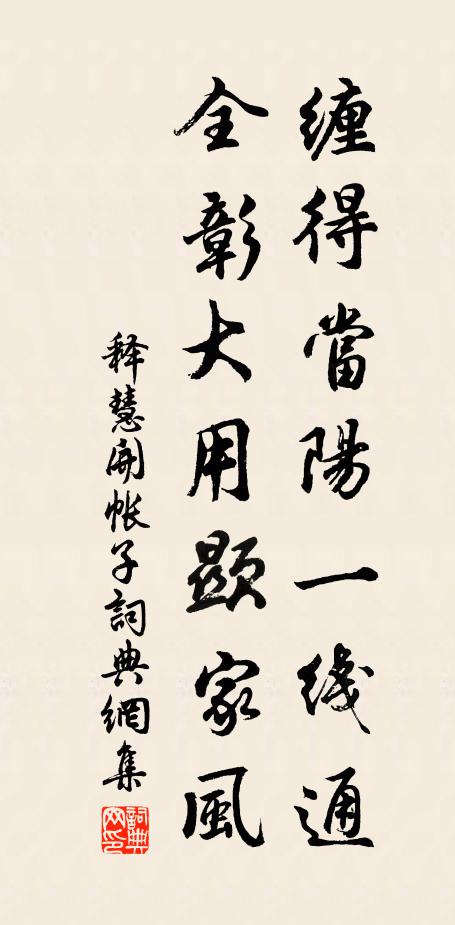 缠得當陽一线通
全彰大用顯家風
释慧開帐子詞典網集
詞典
网印